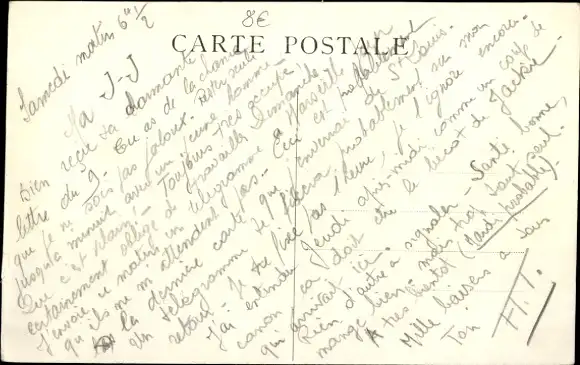 8€
CARTE POSTALE
Samedi matin 6h 1/2
Ma J-J
Bien reçu ta charmante
lettre du 9. Tu as de la chance
que je ne sois pas jaloux. Rester seule
jusqu'à minuit avec un jeune homme
Que c'est - Toujours très occupé.
certainement obligé de travailler Dimanche
J'envoie ce matin un télégramme à Marseille pour
qu'ils ne m'attendent pas. Ceci est probablement
la dernière carte que j'enverrai de St Louis.
Un télégramme te probablement mon
retour. Je te fixe pas l'heure, je l'ignore encore.
J'ai entendu Jeudi après-midi comme un coup de
canon ça doit être le bécot de Jackie
qui arrivait ici.
Rien d'autre à signaler - Santé bonne,
mange bien - mais trop tout seul.
A très bientôt (Mardi probable)
Mille baisers à tous
Ton